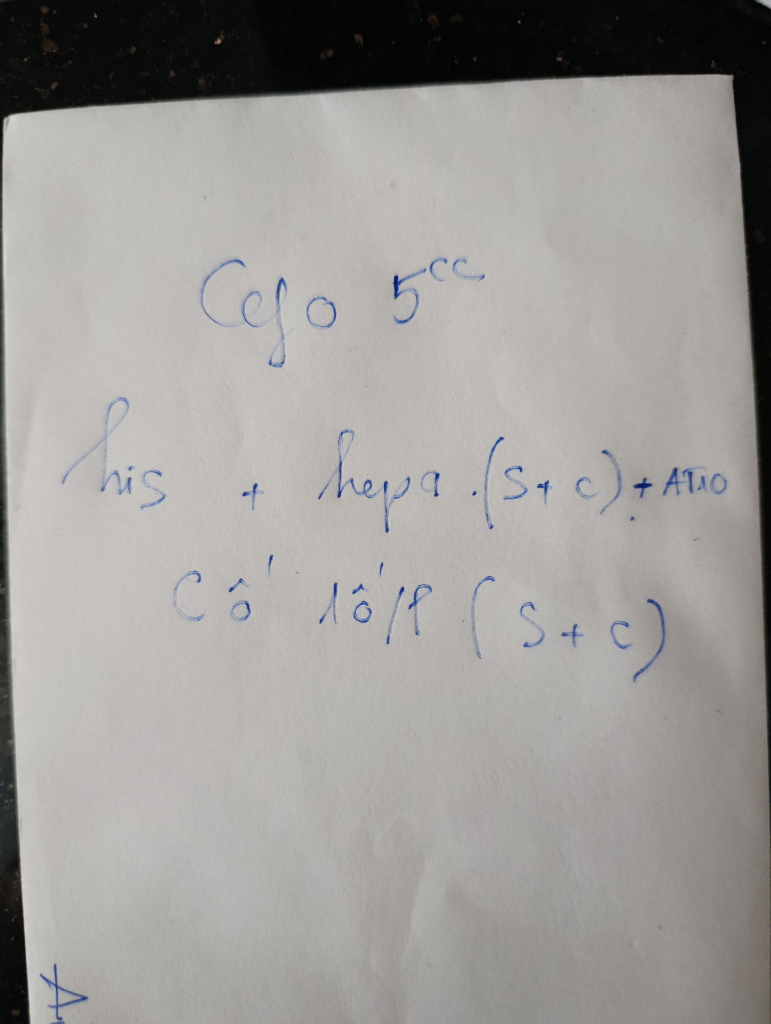 Cefo 5cc
his + hepa. (S + C) + AT10
Cố 1ố/l (S + C)